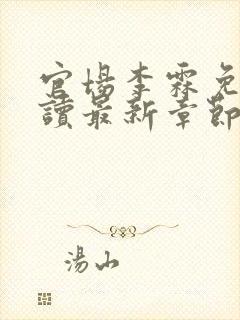 官場李霖免
讀最新章節
湯山